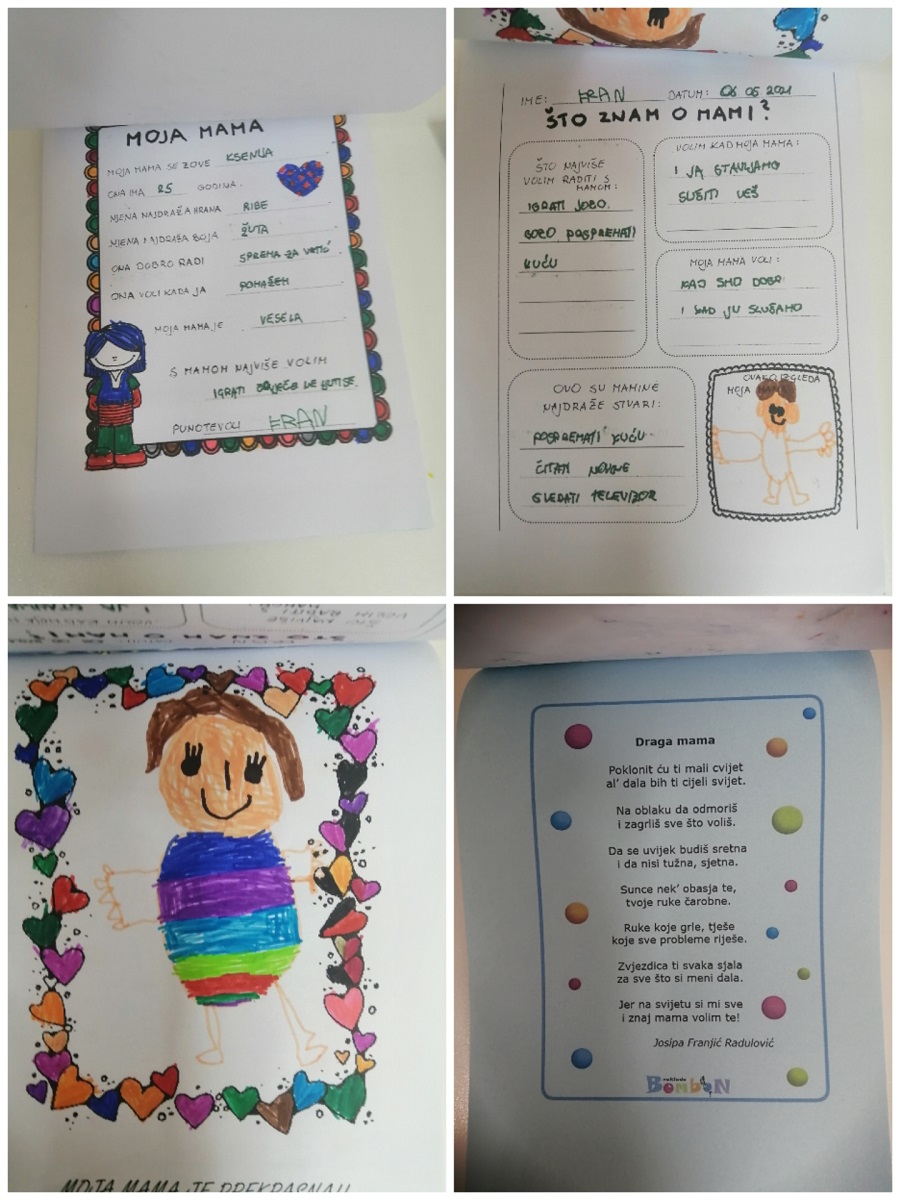 MOJA MAMA
MOJA MAMA SE ZOVE KSENIJA
ONA IMA 25 GODINA.
NJENA NAJDRAŽA HRANA RIBE
NJENA NAJDRAŽA BOJA ŽUTA
ONA DOBRO RADI SPREMA ZA VRTIĆ
ONA VOLI KADA JA POMAŽEM
MOJA MAMA JE VESELA
S MAMOM NAJVIŠE VOLIM
IGRATI ČOVJEČE NE LJUTISE.
PUNO TE VOLI FRAN
IME: FRAN DATUM: 06 05 2021
ŠTO ZNAM O MAMI?
ŠTO NAJVIŠE
VOLIM RADITI S
MAMOM:
IGRATI
POSPREMATI
KUĆU
VOLIM KAD MOJA MAMA:
I JA STAVLJAMO
SUŠITI VEŠ
MOJA MAMA VOLI:
KAD SMO DOBRI
I KAD JU SLUŠAMO
OVO SU MAMINE
NAJDRAŽE STVARI:
POSPREMATI KUĆU
ČITATI NOVINE
GLEDATI TELEVIZOR
OVAKO IZGLEDA
MOJA MAMA
ŠTO ZNAM O MAMI?
MOJA MAMA JE PREKRASNA!!
Draga mama
Poklonit ću ti mali cvijet
al' dala bih ti cijeli svijet.
Na oblaku da odmoriš
i zagrliš sve što voliš.
Da se uvijek budiš sretna
i da nisi tužna, sjetna.
Sunce nek' obasja te,
tvoje ruke čarobne.
Ruke koje grle, tješe
koje sve probleme riješe.
Zvjezdica ti svaka sjala
za sve što si meni dala.
Jer na svijetu si mi sve
i znaj mama volim te!
Josipa Franjić Radulović
naklada
BOMBON